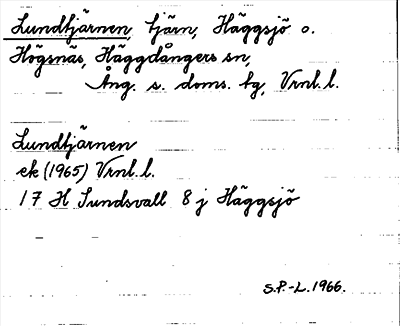 Lundtjärnen, tjärn, Häggsjö o.
Högsnäs, Häggdångers sn,
Ång. s. doms. tg, Vrnl. l.
Lundtjärnen
ek (1965) Vrnl. l.
17 H Sundsvall 8 j Häggsjö
S.P.-L. 1966.